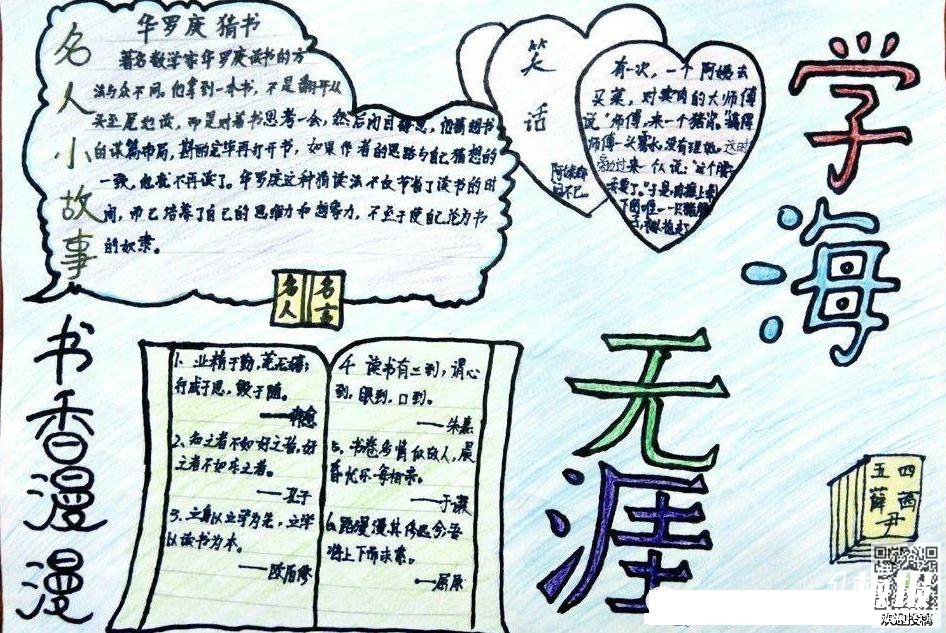 名人小故事
华罗庚猜书
著名数学家华罗庚读书的方
法与众不同。他拿到一本书，不是翻开从
头至尾地读，而是对着书思考一会，然后闭目静思，他猜想书
的谋篇布局，斟酌完毕再打开书，如果作者的思路与自己猜想的
一致，他就不再读了。华罗庚这种猜读法不仅节省了读书的时
间，而且培养了自己的思维力和想象力，不至于使自己沦为书
的奴隶。
笑话
有一次，一个阿姨去
买菜，对卖肉的大师傅
说“师傅，来一个猪
师傅一头雾水，没有理她。这时
过来一人说：“这个
要了。”于是
下的唯一一只
学海
无涯
名人
名言
书香漫漫
1、业精于勤，荒于嬉；
行成于思，毁于随。
——韩愈
2、知之者不如好之者，好
之者不如乐之者。
——孔子
3、立身以立学为先，立学
以读书为本。
——欧阳修
4 读书有三到，谓心
到，眼到，口到。
——朱熹
5、书卷多情似故人，晨
昏忧乐每相亲。
——于谦
6、路漫漫其修远兮吾
将上下而求索。
——屈原
五四
薛茜
尹
欢迎投稿